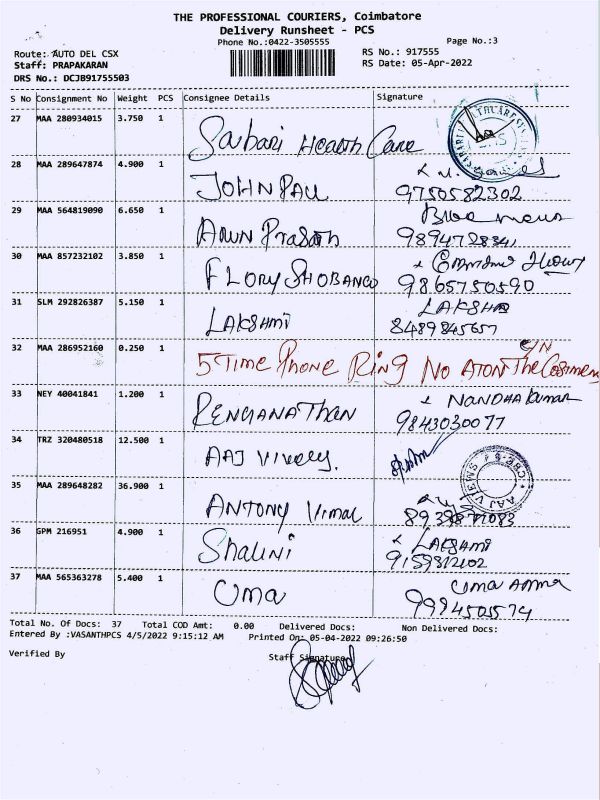 THE PROFESSIONAL COURIERS, Coimbatore
Delivery Runsheet - PCS
Phone No.:0422-3505555 Page No.:3
Route: AUTO DEL CSX RS No.: 917555
Staff: PRAPAKARAN RS Date: 05-Apr-2022
DRS No.: DCJB91755503
S No Consignment No Weight PCS Consignee Details Signature
27 MAA 280934015 3.750 1 Saibari Health Care
28 MAA 289647874 4.900 1 JOHN PAU 9750582302
29 MAA 564819090 6.650 1 Arun Prasath
30 MAA 857232102 3.850 1 FLORY SHOBANCO 9865750590
31 SLM 292826387 5.150 1 LAKSHMI LAKSHMI 8489845657
32 MAA 286952160 0.250 1 5 Time Phone Ring No ATON The C/N
33 NEY 40041841 1.200 1 RENGANATHAN Nandha kumar 9843030077
34 TRZ 320480518 12.500 1 AAJ
35 MAA 289648282 36.900 1 ANTONY Vimal
36 GPM 216951 4.900 1 Shalini LAKSHMI
37 MAA 565363278 5.400 1 Uma Uma
Total No. Of Docs: 37 Total COD Amt: 0.00 Delivered Docs: Non Delivered Docs:
Entered By :VASANTHPCS 4/5/2022 9:15:12 AM Printed On: 05-04-2022 09:26:50
Verified By Staff Signature